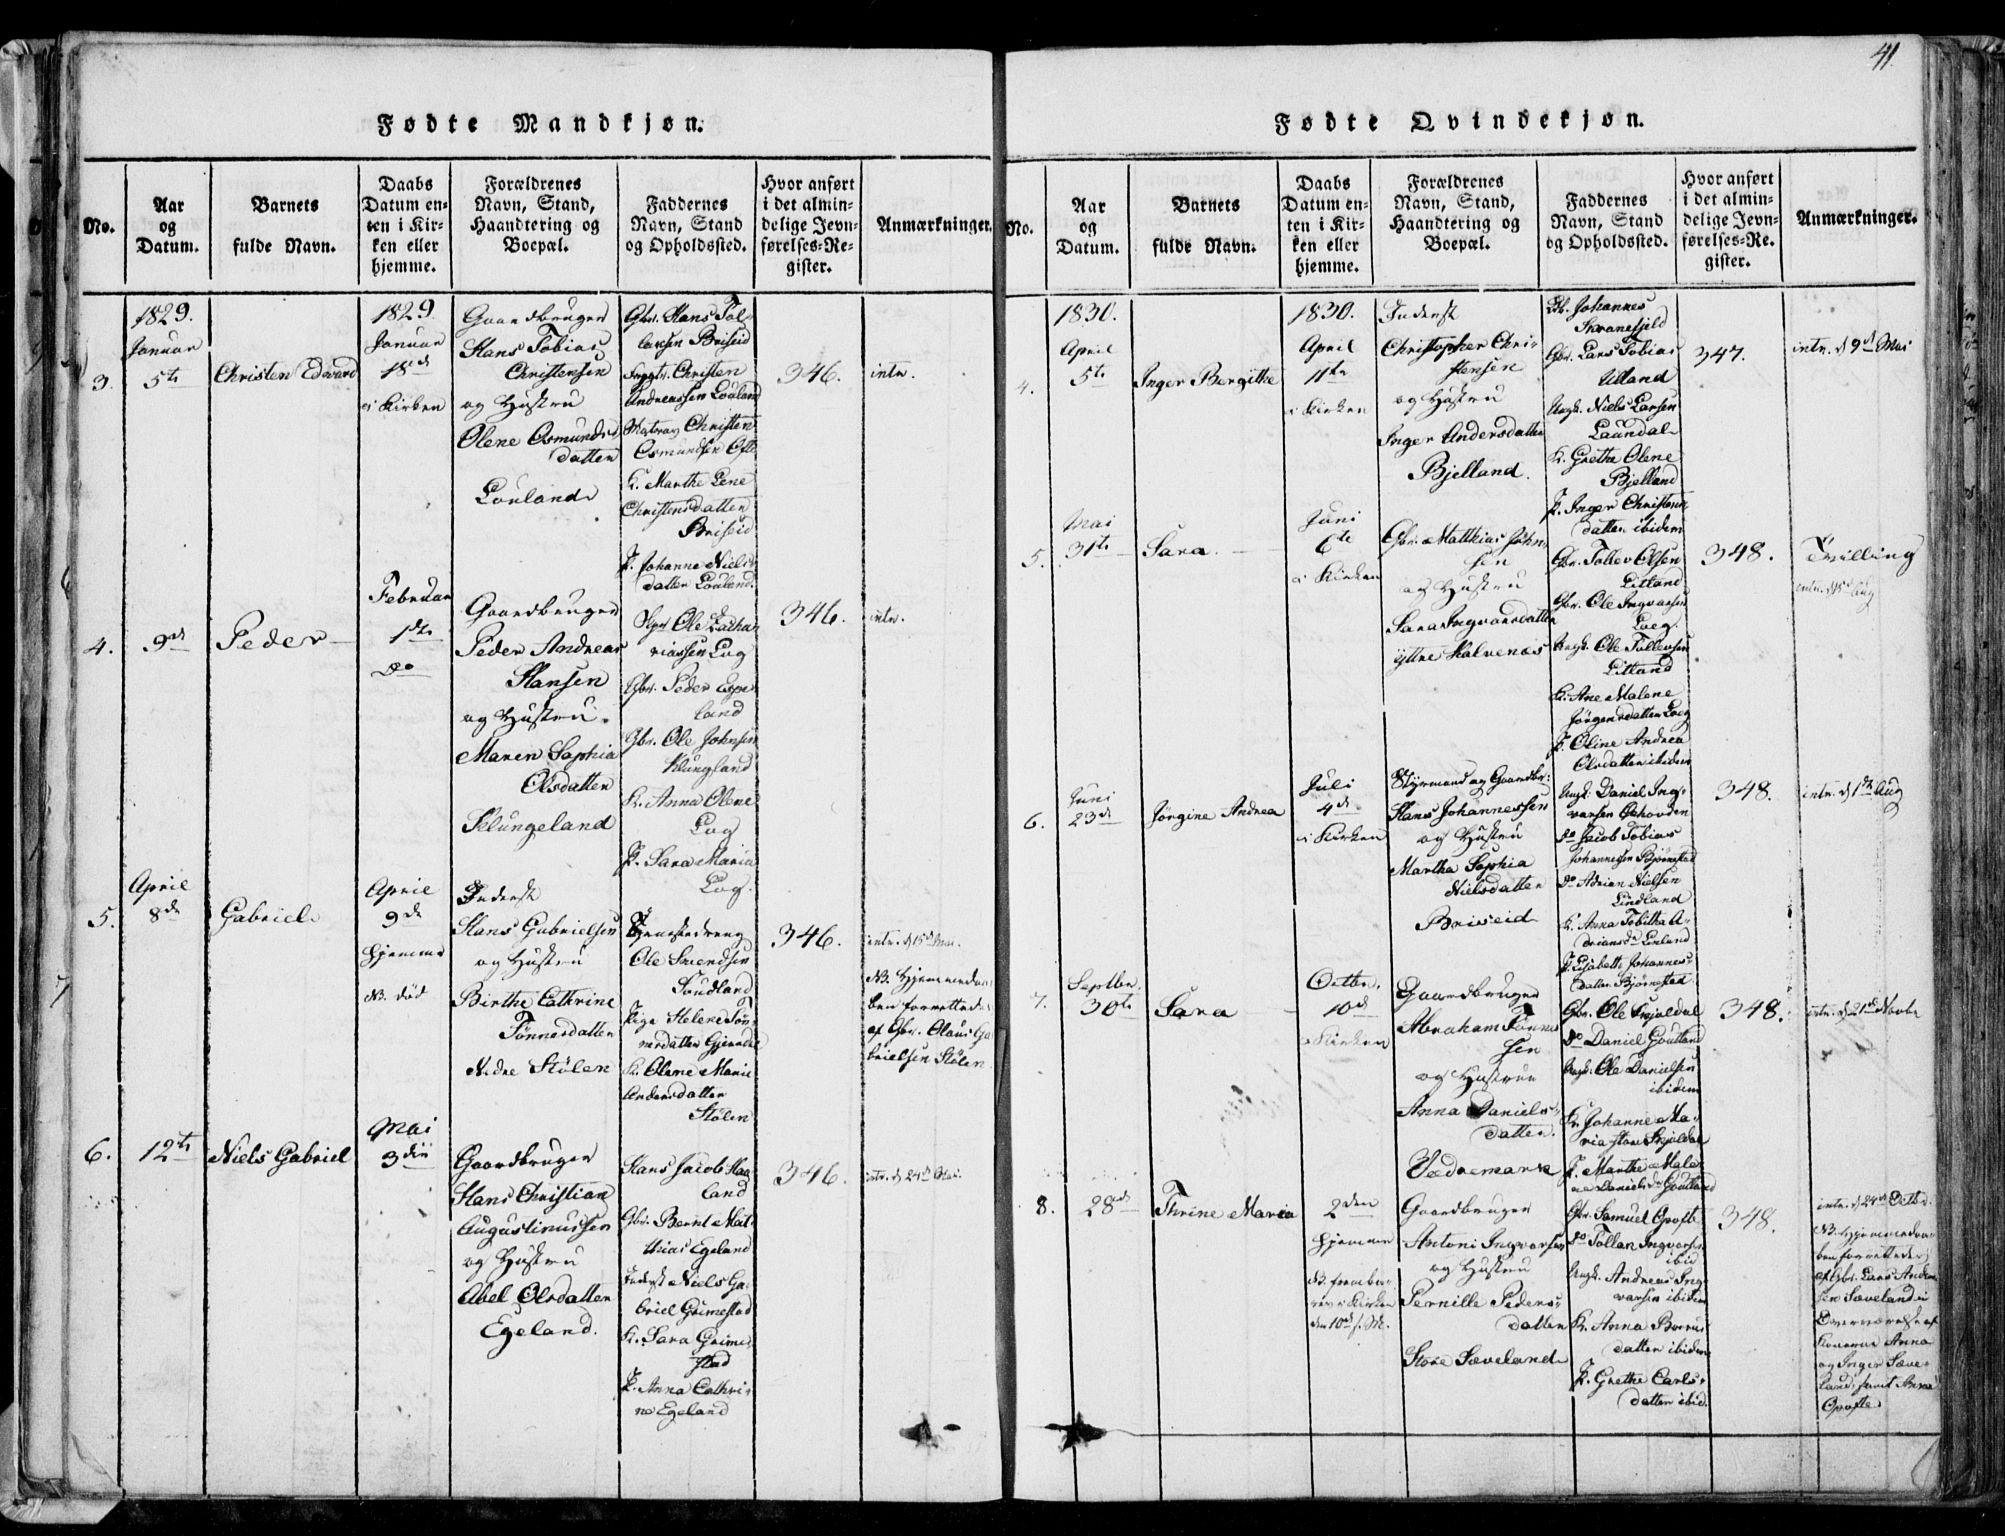 41.
Fødte Mandkjøn.
No.
Aar
og
Datum.
Barnets
fulde Navn.
Daabs
Datum en-
ten i Kir-
ken eller
hjemme.
Forældrenes
Navn, Stand,
Haandtering og
Boepæl.
Faddernes
Navn, Stand
og Opholdssted.
Hvor anført
i det almin-
delige Jevn-
førelses-Re-
gister.
Anmærkninger.
3.
1829.
Januar
5te
Christen Edvard
1829
Januar
18de
i Kirken
Gaardbruger
Hans Tobias
Christensen
og Hustru
Olene Osmunds
datter
Louland
Gbr. Hans Tol-
lavsen Briseid
Christen
Andreassen Louland
Christen
Osmundsen Ofte
K. Marthe Lene
Christensdatter
Briseid
P. Johanne Niels-
datter Louland.
346.
intr.
4.
9de
Peder
Februar
1ste
do
Gaardbruger
Peder Andreas
Hansen
og Hustru
Maren Sophia
Olsdatter
Klungeland
Ole Zacha-
riassen Log
Gbr. Peder Espe-
land
Gbr. Ole Johnsen
Klungland
K. Anna Olene
Log
P. Sara Maria
Log.
346.
intr.
5.
April
8de
Gabriel
April
9de
Hjemme
NB. død
Inderst
Hans Gabrielsen
og Hustru
Birthe Cathrine
Tønnesdatter
Nedre Stølen
Ole Svendsen
Soudland
Pige Helene Tøn-
nesdatter Gjendal
K. Olene Marie
Andersdatter
Stølen
346.
intr. d 15de Mai.
NB. Hjemmedaa-
ben forrettedes
af Gbr. Olaus Ga-
brielsen Stølen
6.
12te
Niels Gabriel
Mai
3die
Gaardbruger
Hans Christian
Augustinussen
og Hustru
Abel Olsdatter
Egeland.
Hans Jacob Haa-
land
Gbr. Bernt Mat-
thias Egeland
Inderst Niels Ga-
briel Grimestad
K. Sara Grime-
stad
P. Anna Cathri-
ne Egeland
346.
intr. d 24de Mai.
Fødte Qvindekjøn.
No.
Aar
og
Datum.
Barnets
fulde Navn.
Daabs
Datum en-
ten i Kir-
ken eller
hjemme.
Forældrenes
Navn, Stand,
Haandtering og
Boepæl.
Faddernes
Navn, Stand
og Opholdssted.
Hvor anført
i det almin-
delige Jevn-
førelses-Re-
gister.
Anmærkninger.
4.
1830.
April
5te
Inger Bergitte
1830.
April
11te
i Kirken
Inderst
Christopher Chri-
stensen
og Hustru
Inger Andersdatter
Bjelland.
Johannes
Skranefjeld
Gbr. Lars Tobias
Ulland
Ungk. Niels Larsen
Laundal
K. Grethe Olene
Bjelland
P. Inger Christens-
datter ibidem
347.
intr. d 9de Mai
5.
Mai
31te
Sara
Juni
6te
i Kirken
Gbr. Matthias John-
sen
og Hustru
Sara Ingvarsdatter
Yttre Halvenes
Gbr. Tollev Olsen
Litland
Gbr. Ole Ingvarsen
Loeg
Ungk. Ole Tollevsen
Litland
K. Ane Malene
Jørgensdatter Loeg
P. Oline Andrea
Olsdatter ibidem
348.
Tvilling
6.
Juni
23de
Jørgine Andrea
Juli
4de
i Kirken
Styrmand og Gaardbr.
Hans Johannessen
og Hustru
Martha Sophia
Nielsdatter
Briseid
Ungk. Daniel Ing-
varsen
do Jacob Tobias
Johannessen Bjørnestad
do Adrian Nielsen
Lindland
K. Anna Tobitha A-
driansdr Linland
P. Elisabeth Johannes-
datter Bjørnestad
348.
intr. d 1ste Aug
7.
Septbr.
30te
Sara
Octbr.
10de
i Kirken
Gaardbruger
Abraham Tønnes-
sen
og Hustrue
Anna Daniels-
datter.
Vedremark
Gbr. Ole Skjoldal
do Daniel Goutland
Ungk. Ole Danielsen
ibidem
K. Johanne Ma-
ria store Skjoldal
P. Marthe Male-
ne Danielsdr Goutland
348.
intr. d 21de Novbr
8.
28de
Thrine Maria
2den
Hjemme
NB. frembaa-
ren i Kirken
den 10de
Gaardbruger
Antoni Ingvarsen
og Hustru
Pernille Peders-
datter
Store Sæveland
Gbr. Samuel Opofte
do Tollak Ingvarsen
ibid
Ungk. Andreas Ing-
varsen ibidem
K. Anna
datter ibidem
P. Grethe Carls-
datter ibid.
348.
intr. d 24de Octbr.
NB. Hjemmedaa-
ben forrettedes
af Gbr. Lars Ander-
sen Sæveland i
Overværelse af
Konerne Anna
og Inger Sæve-
land, samt Anna
Opofte.